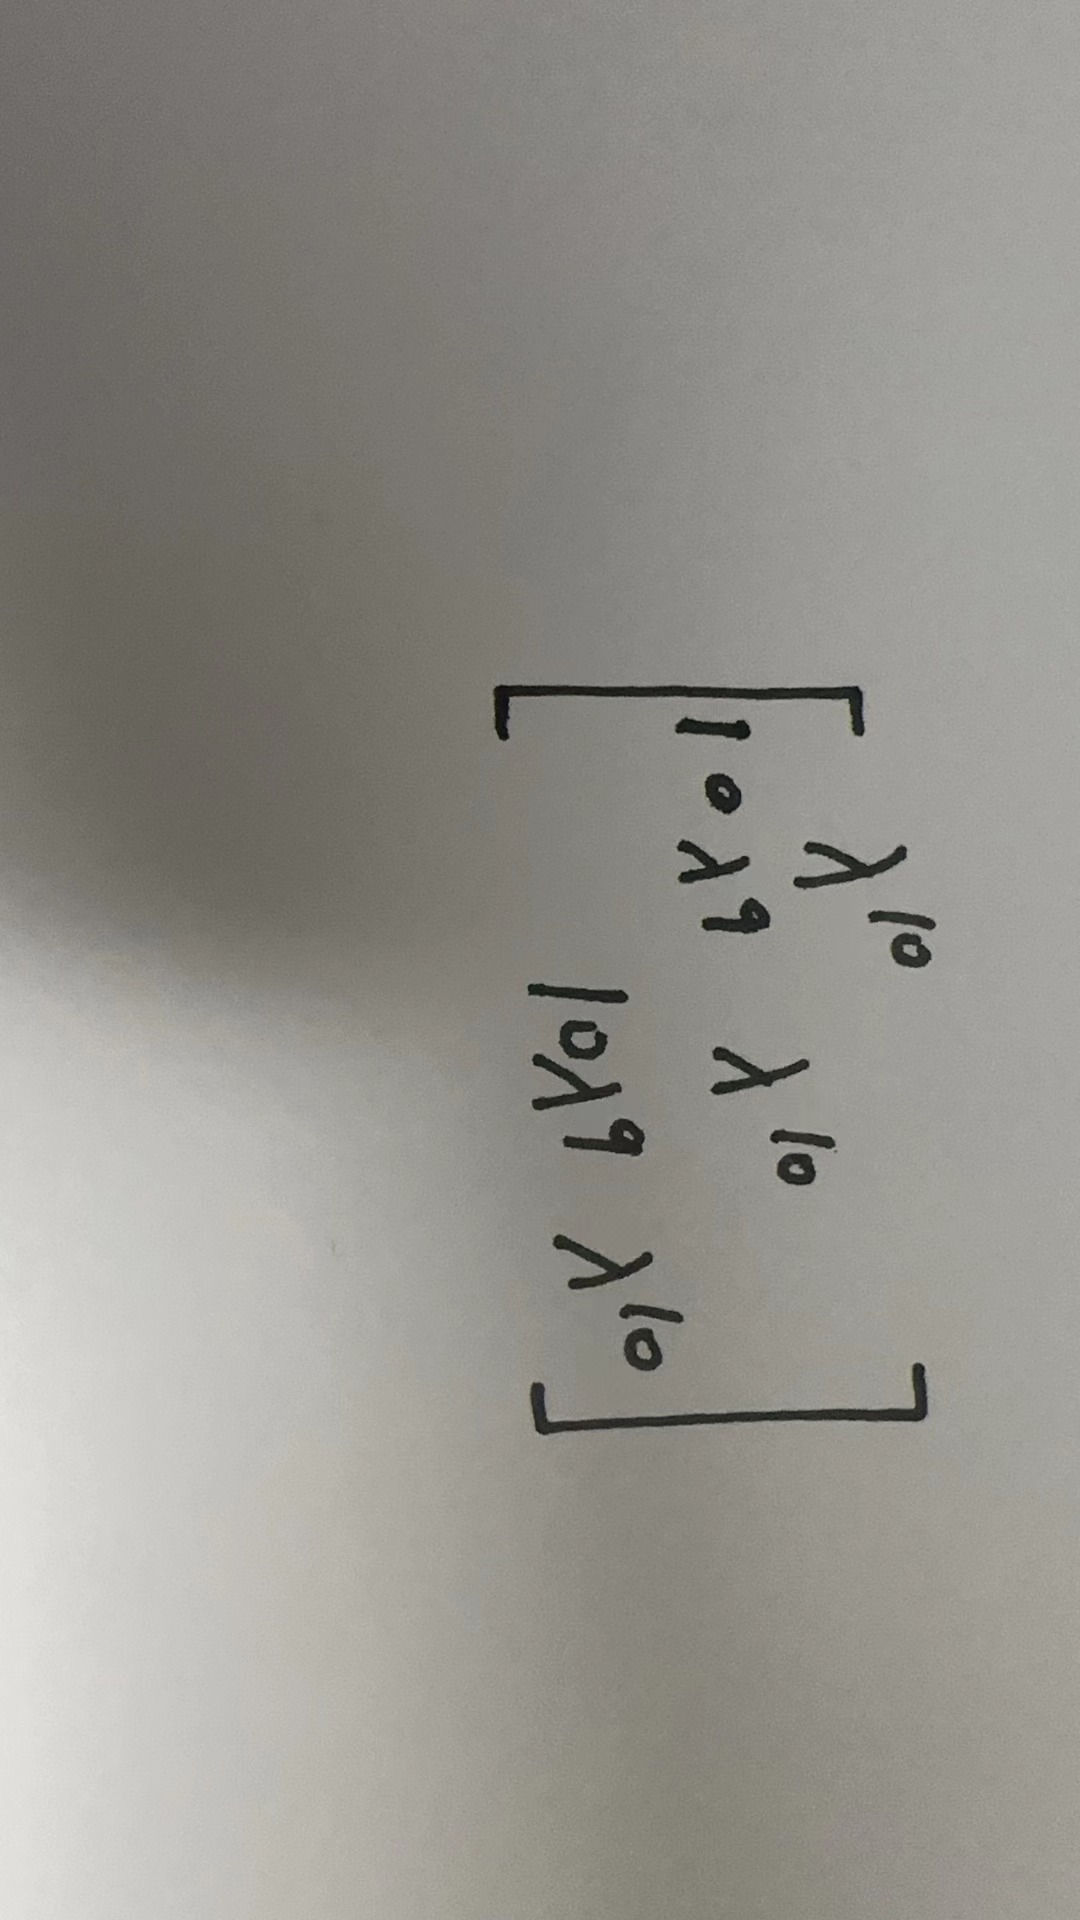 [ λ¹⁰
10λ⁹ λ¹⁰
10λ⁹ λ¹⁰ ]